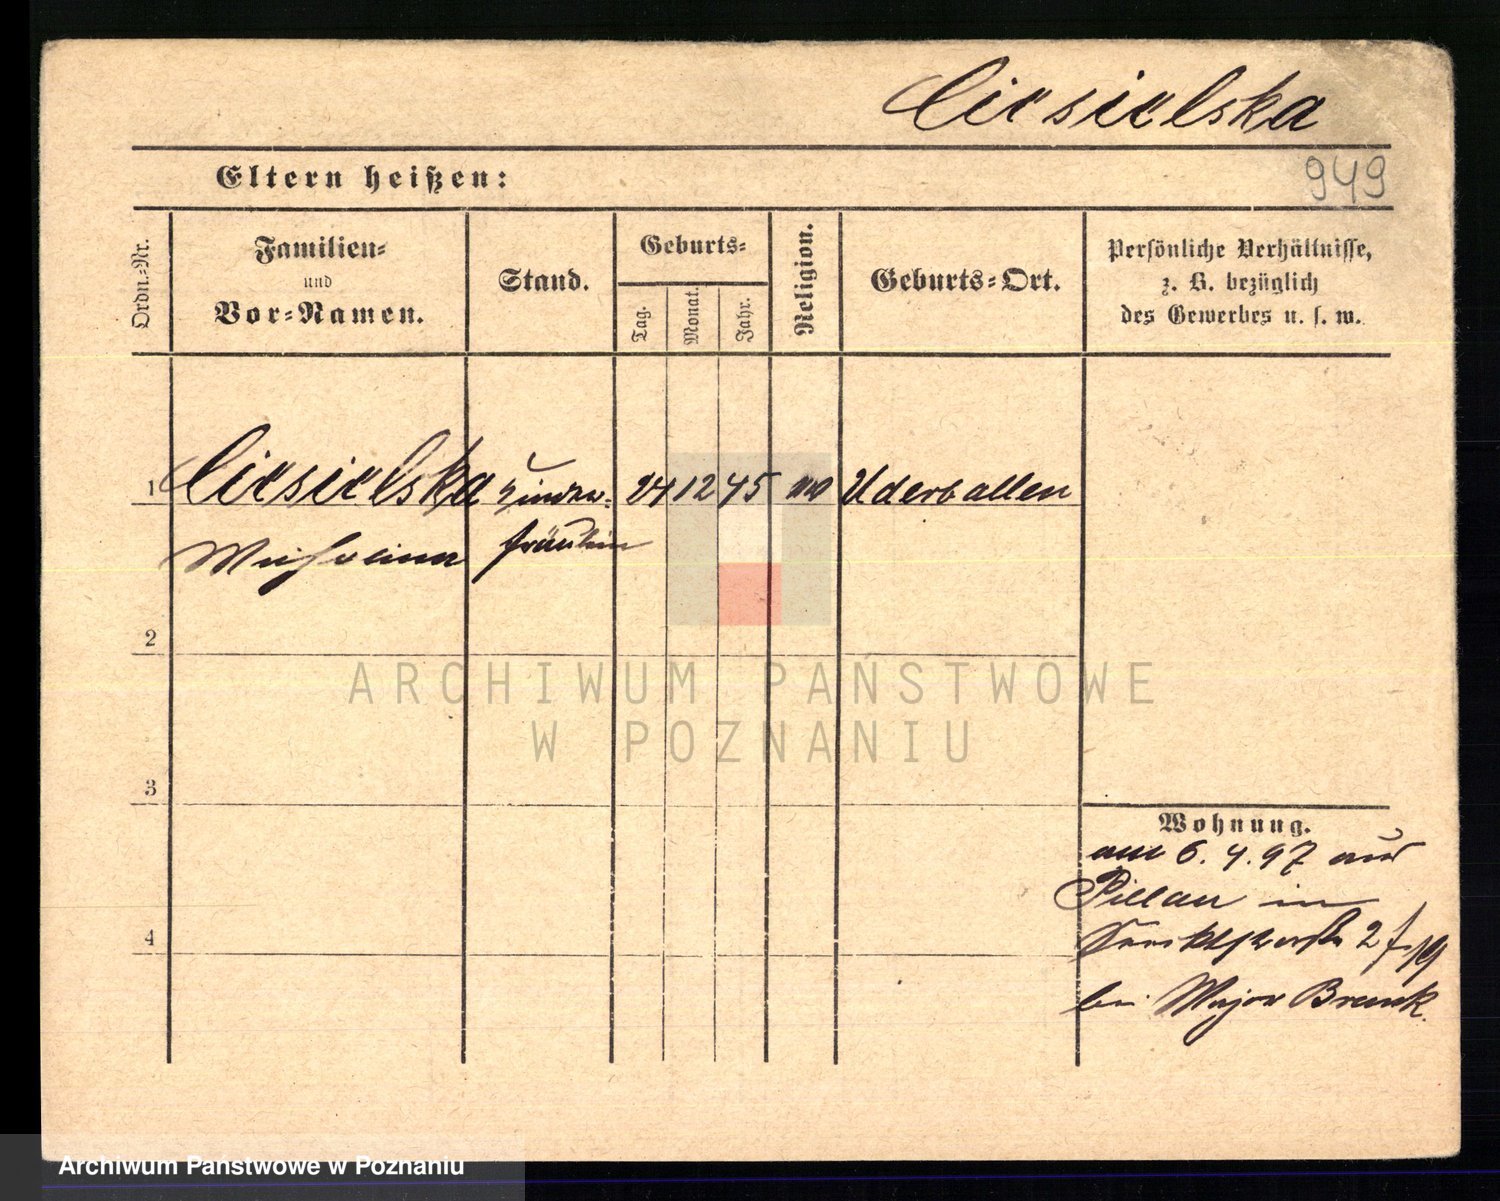 Ciesielska
Eltern heißen:
949
Ordn.-Nr.
Familien-
und
Vor-Namen.
Stand.
Geburts-
Tag.
Monat.
Jahr.
Religion.
Geburts-Ort.
Persönliche Verhältnisse,
z. B. bezüglich
des Gewerbes u. s. w.
1 Ciesielska Kinder- 24 12 75 ev Uderballen
fräulein
2
3
4
Wohnung.
am 6. 4. 97 aus
Pillau in
2
bei Major Brunk.
ARCHIWUM PAŃSTWOWE
W POZNANIU
Archiwum Państwowe w Poznaniu